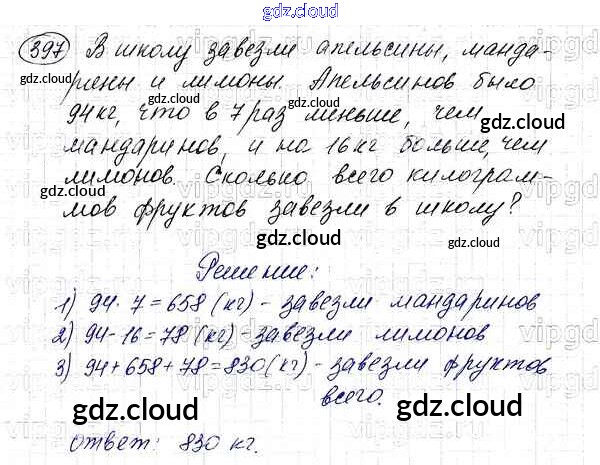 gdz.cloud
397 В школу завезли апельсины, манда-
рины и лимоны. Апельсинов было
94 кг, что в 7 раз меньше, чем
мандаринов, и на 16 кг больше, чем
лимонов. Сколько всего килограм-
мов фруктов завезли в школу?
Решение:
1) 94 · 7 = 658 (кг) - завезли мандаринов
2) 94 - 16 = 78 (кг) - завезли лимонов
3) 94 + 658 + 78 = 830 (кг) - завезли фруктов
всего.
gdz.cloud
Ответ: 830 кг.